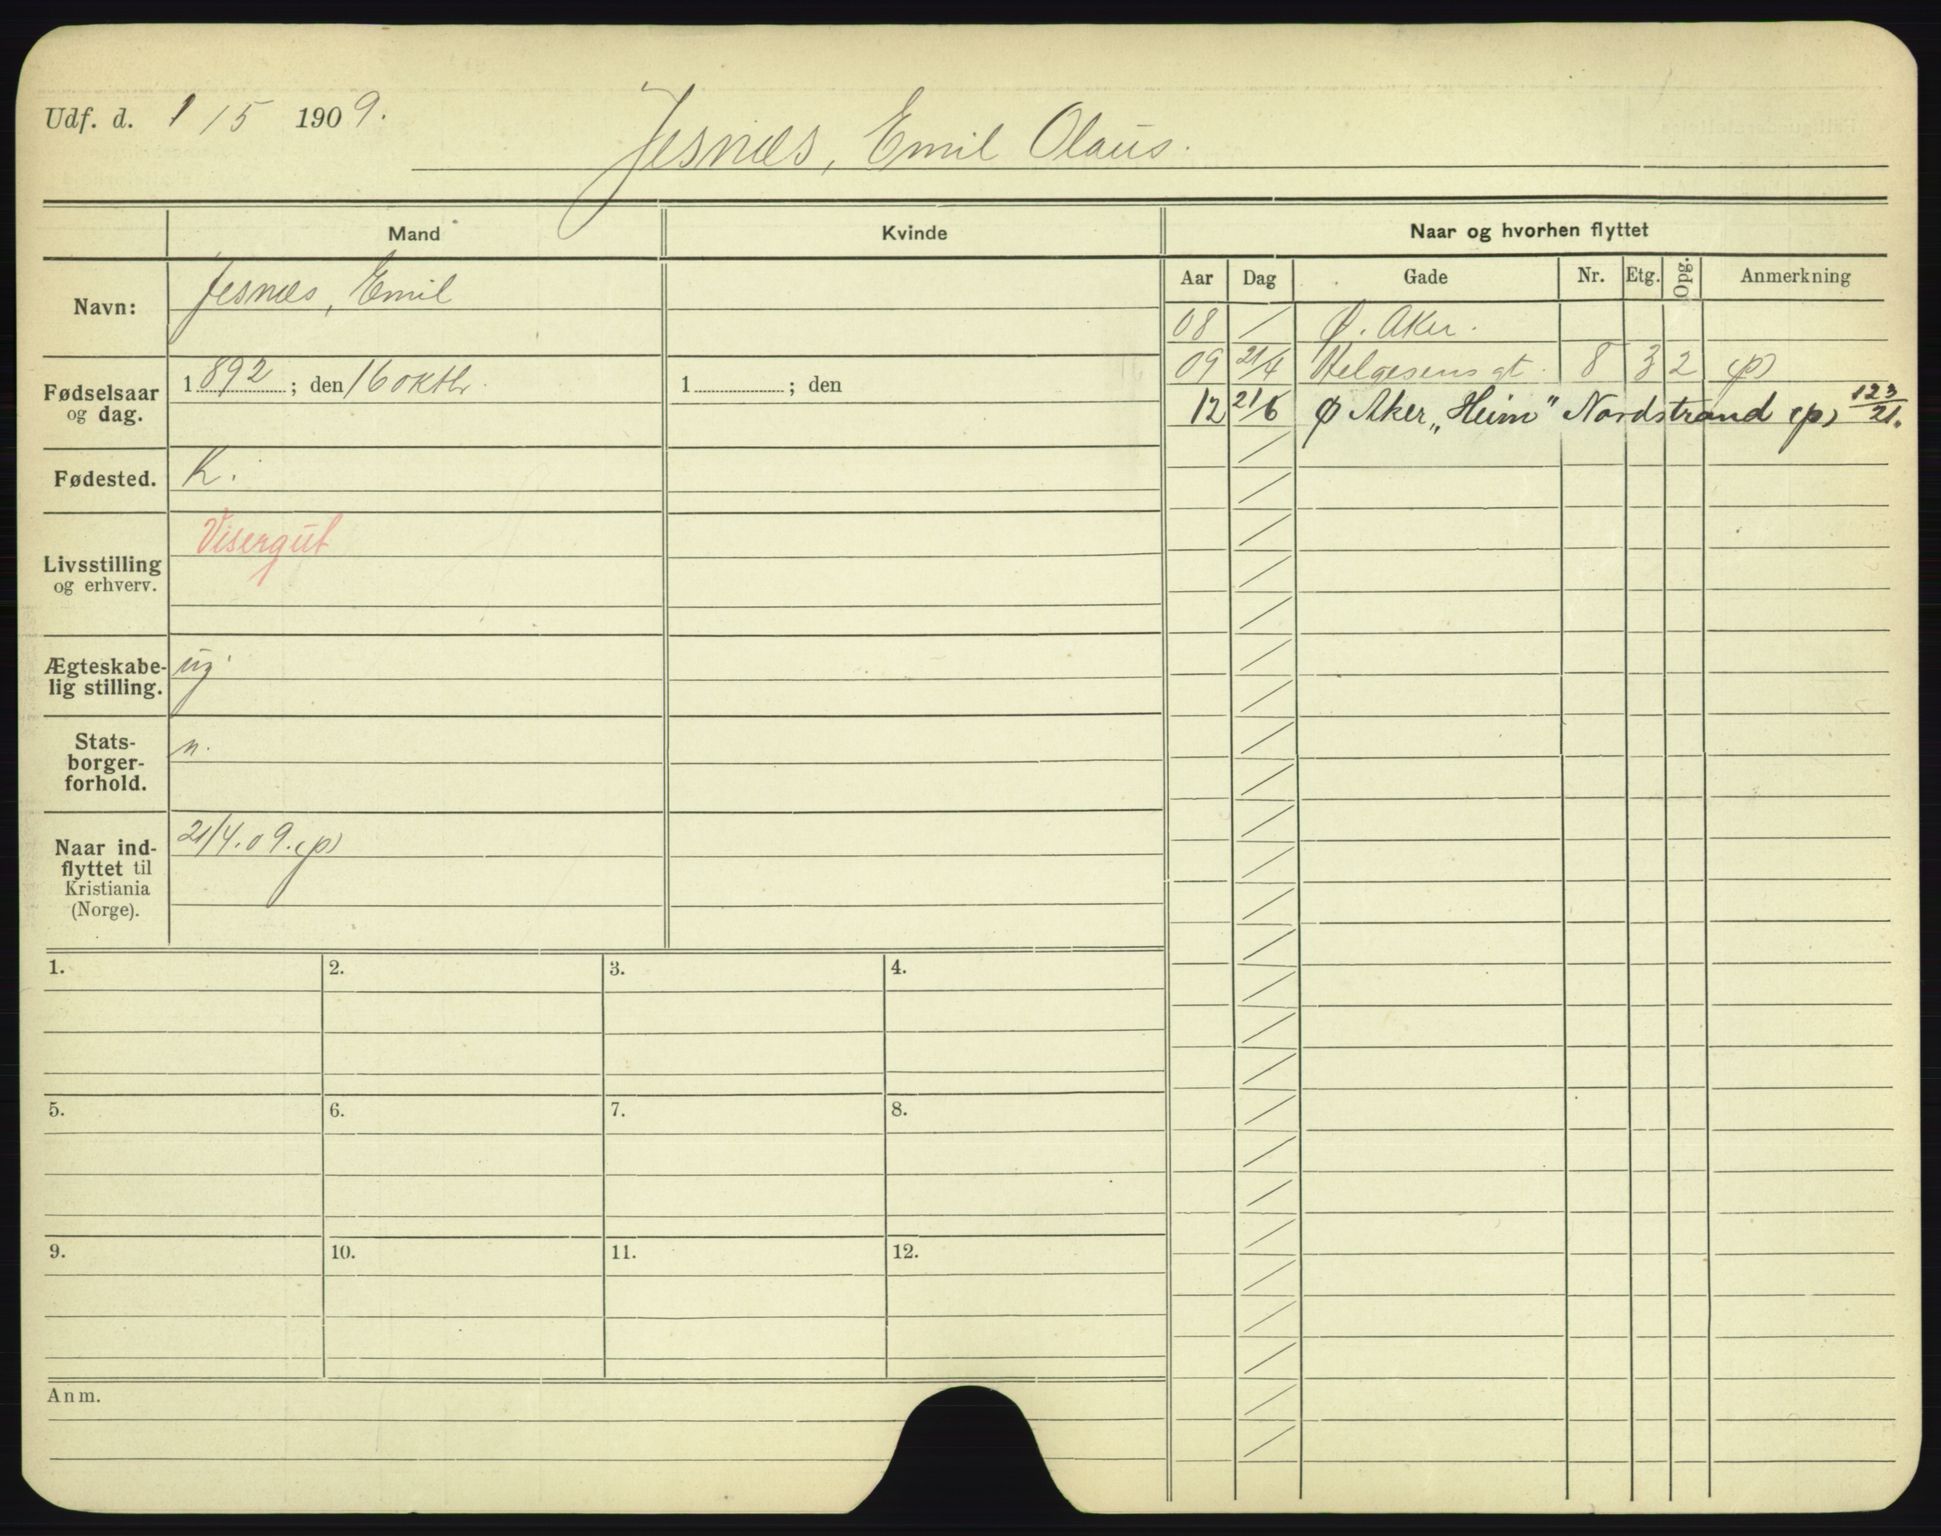 Udf. d. 1/5 1909.
Jesnæs, Emil Olaus.
Mand Kvinde Naar og hvorhen flyttet
Aar Dag Gade Nr. Etg. Opg. Anmerkning
Navn: Jesnæs, Emil
08 / Ø. Aker.
09 21/4 Helgesens gt. 8 3 2 (p)
12 21/6 Ø Aker „Heim" Nordstrand (p) 123/21.
Fødselsaar og dag. 1892; den 16 oktbr. 1 ; den
Fødested. K.
Livsstilling og erhverv. Visergut
Ægteskabe-
lig stilling. ug.
Stats-
borger-
forhold. n.
Naar ind-
flyttet til
Kristiania
(Norge). 21/4.09.(p)
1. 2. 3. 4.
5. 6. 7. 8.
9. 10. 11. 12.
Anm.